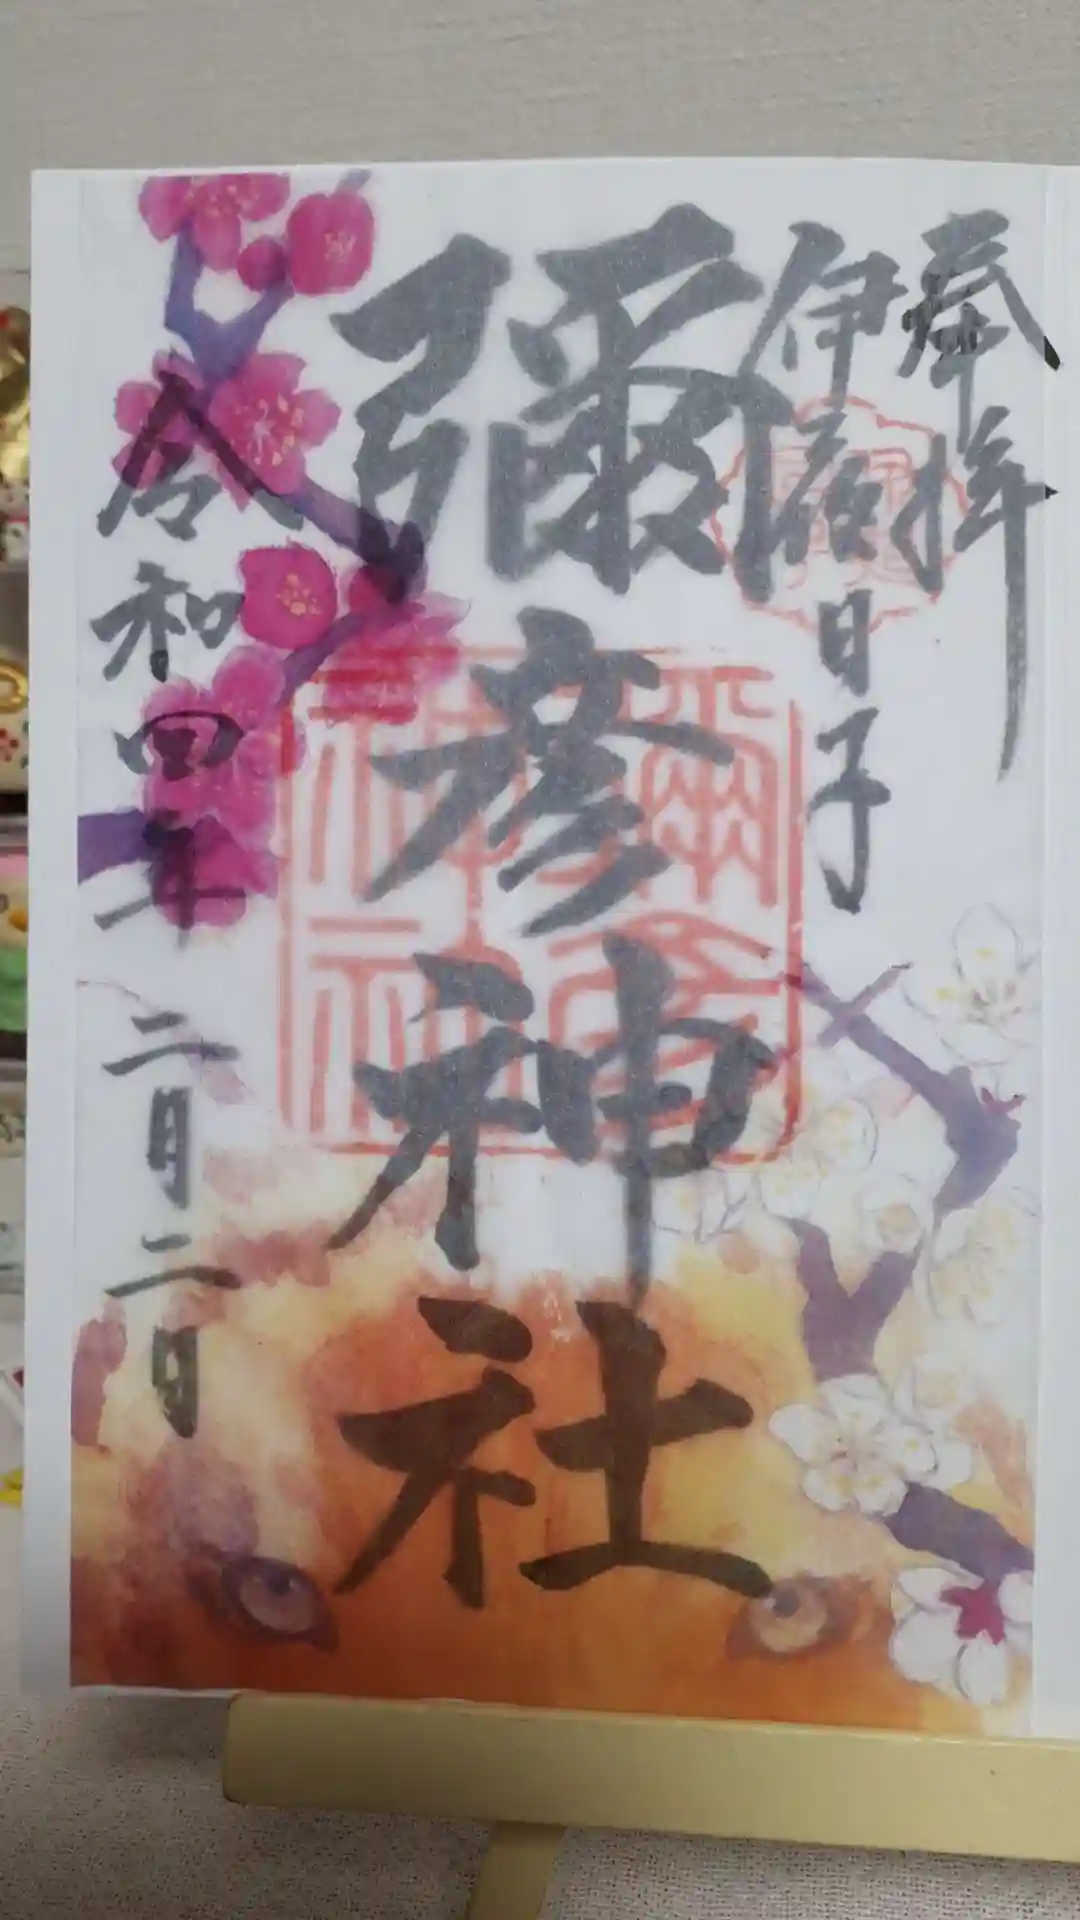 奉拝
伊夜日子
彌彦神社
令和四年二月二日